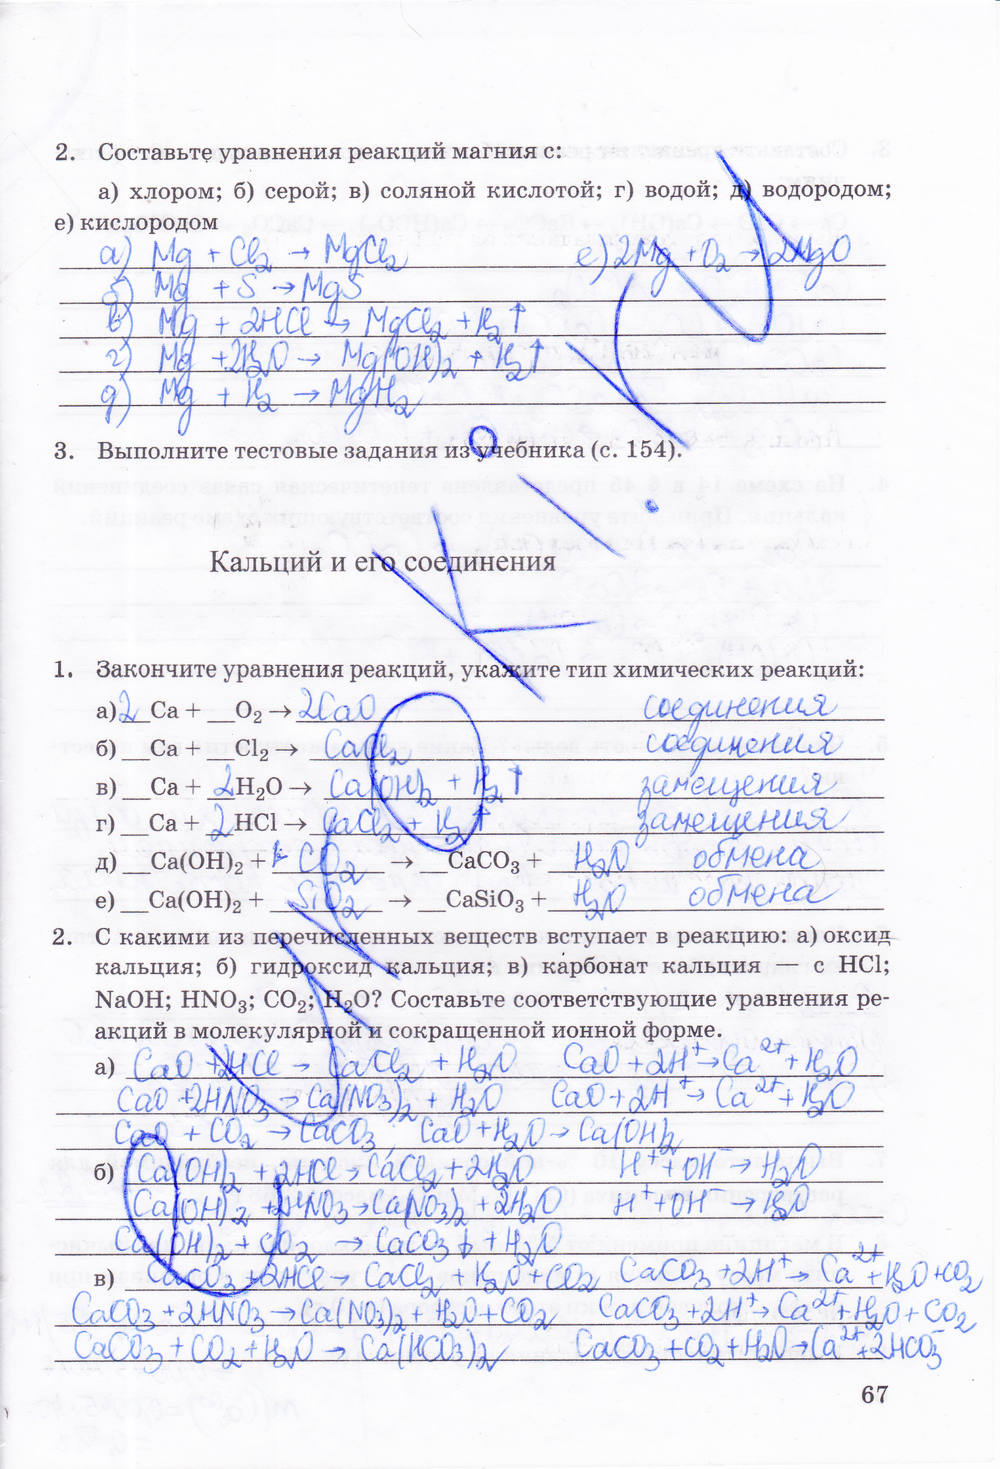 2. Составьте уравнения реакций магния с:
а) хлором; б) серой; в) соляной кислотой; г) водой; д) водородом;
е) кислородом
а) Mg + Cl₂ → MgCl₂ е) 2Mg + O₂ → 2MgO
б) Mg + S → MgS
в) Mg + 2HCl → MgCl₂ + H₂↑
г) Mg + 2H₂O → Mg(OH)₂ + H₂↑
д) Mg + H₂ → MgH₂
3. Выполните тестовые задания из учебника (с. 154).
Кальций и его соединения
1. Закончите уравнения реакций, укажите тип химических реакций:
а) 2 Ca + __O₂ → 2CaO соединения
б) __Ca + __Cl₂ → CaCl₂ соединения
в) __Ca + 2H₂O → Ca(OH)₂ + H₂↑ замещения
г) __Ca + 2HCl → CaCl₂ + H₂↑ замещения
д) __Ca(OH)₂ + CO₂ → CaCO₃ + H₂O обмена
е) __Ca(OH)₂ + SiO₂ → __CaSiO₃ + H₂O обмена
2. С какими из перечисленных веществ вступает в реакцию: а) оксид
кальция; б) гидроксид кальция; в) карбонат кальция — с HCl;
NaOH; HNO₃; CO₂; H₂O? Составьте соответствующие уравнения ре-
акций в молекулярной и сокращенной ионной форме.
а) CaO + 2HCl → CaCl₂ + H₂O CaO + 2H⁺ → Ca²⁺ + H₂O
CaO + 2HNO₃ → Ca(NO₃)₂ + H₂O CaO + 2H⁺ → Ca²⁺ + H₂O
CaO + CO₂ → CaCO₃, CaO + H₂O → Ca(OH)₂
б) Ca(OH)₂ + 2HCl → CaCl₂ + 2H₂O H⁺ + OH⁻ → H₂O
Ca(OH)₂ + 2HNO₃ → Ca(NO₃)₂ + 2H₂O H⁺ + OH⁻ → H₂O
Ca(OH)₂ + CO₂ → CaCO₃↓ + H₂O
в) CaCO₃ + 2HCl → CaCl₂ + H₂O + CO₂ CaCO₃ + 2H⁺ → Ca²⁺ + H₂O + CO₂
CaCO₃ + 2HNO₃ → Ca(NO₃)₂ + H₂O + CO₂ CaCO₃ + 2H⁺ → Ca²⁺ + H₂O + CO₂
CaCO₃ + CO₂ + H₂O → Ca(HCO₃)₂ CaCO₃ + CO₂ + H₂O → Ca²⁺ + 2HCO₃⁻
67